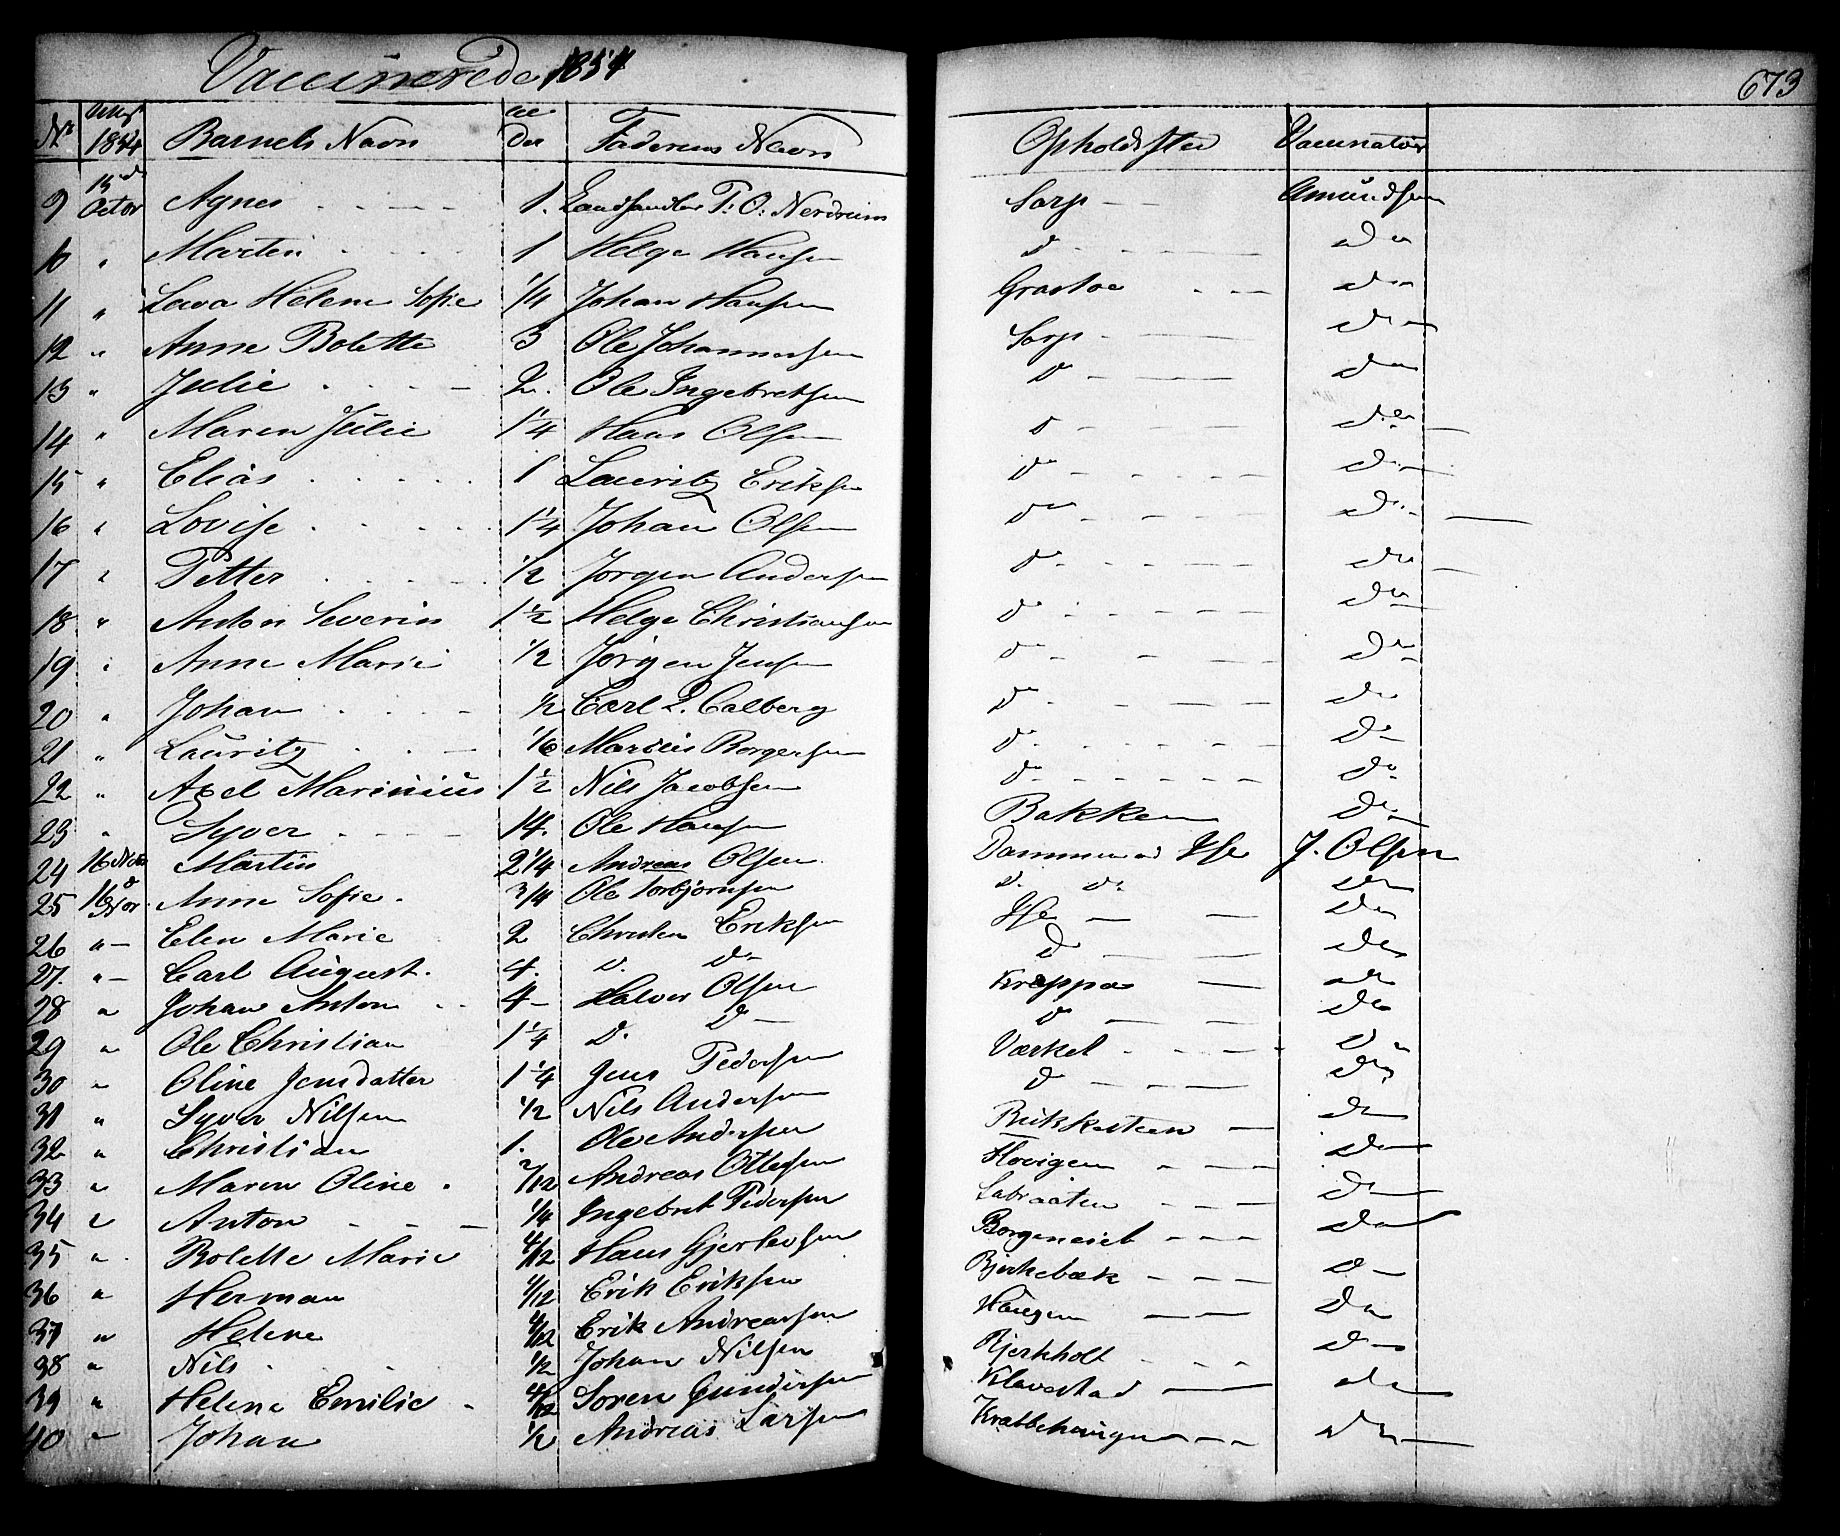 Vaccinerede 1854
673
No 1854 Barnets Navn Alder Faderens Navn Opholdssted Vaccinateur
9 15de Octor Agnes 1. Landhandler T: O: Nerdrum Sarp Amundsen
10 " Martin 1 Helge Hansen do do
11 " Lava Helene Sofie 1/4 Johan Hansen do
12 " Anne Bolette 3 Ole Johannesen Sarp do
13 " Julie 2. Ole Ingebretsen do do
14 " Maren Julie 1 1/4 Hans Olsen do do
15 " Elias 1 Lauritz Eriksen do do
16 " Lovise 1 1/4 Johan Olsen do do
17 " Petter 1/2 Jørgen Andersen do do
18 " Anton Severin 1 1/2 Helge Christiansen do do
19 " Anne Marie 1/2 Jørgen Jensen do do
20 " Johan 1/2 Carl L. Calberg do do
21 " Lauritz 1/6 Marius Borgersen do do
22 " Axel Marinius 1 1/2 Nils Jacobsen do do
23 " Syver 14. Ole Hansen Bakken do
24 16 Martin 2 1/4 Andreas Olsen Dammen Ise J. Olsen
25 16 Nor. Anne Sofie. 3/4 Ole Torbjørnsen do do do
26 " Elen Marie 2 Christen Eriksen Ise do
27. " Carl August. 4. do do do do
28 " Johan Anton 4 Halvor Olsen Kreppa do
29 " Ole Christian 1 1/4 do do do do
30 " Oline Jensdatter 1 1/4 Jens Pedersen Værket do
31 " Syver Nilsen 1/2 Nils Andersen do do
32 " Christian 1. Ole Andersen Bukkesteen do
33 " Maren Oline 2/12 Andreas Ottesen Hovigen do
34 " Anton 1/4 Ingebret Pedersen Labraaten do
35 " Bolette Marie 4/12 Hans Gjerlovsen Borgeneiet do
36 " Herman 4/12 Erik Eriksen Bjerkebæk do
37 " Helene 4/12 Erik Andreassen Haugen do
38 " Nils 1/2 Johan Nilsen Bjerkholt do
39 " Helene Emilie 4/12 Søren Gundersen Klavestad do
40 " Johan 1/2 Andreas Larsen Krabbehaugen do